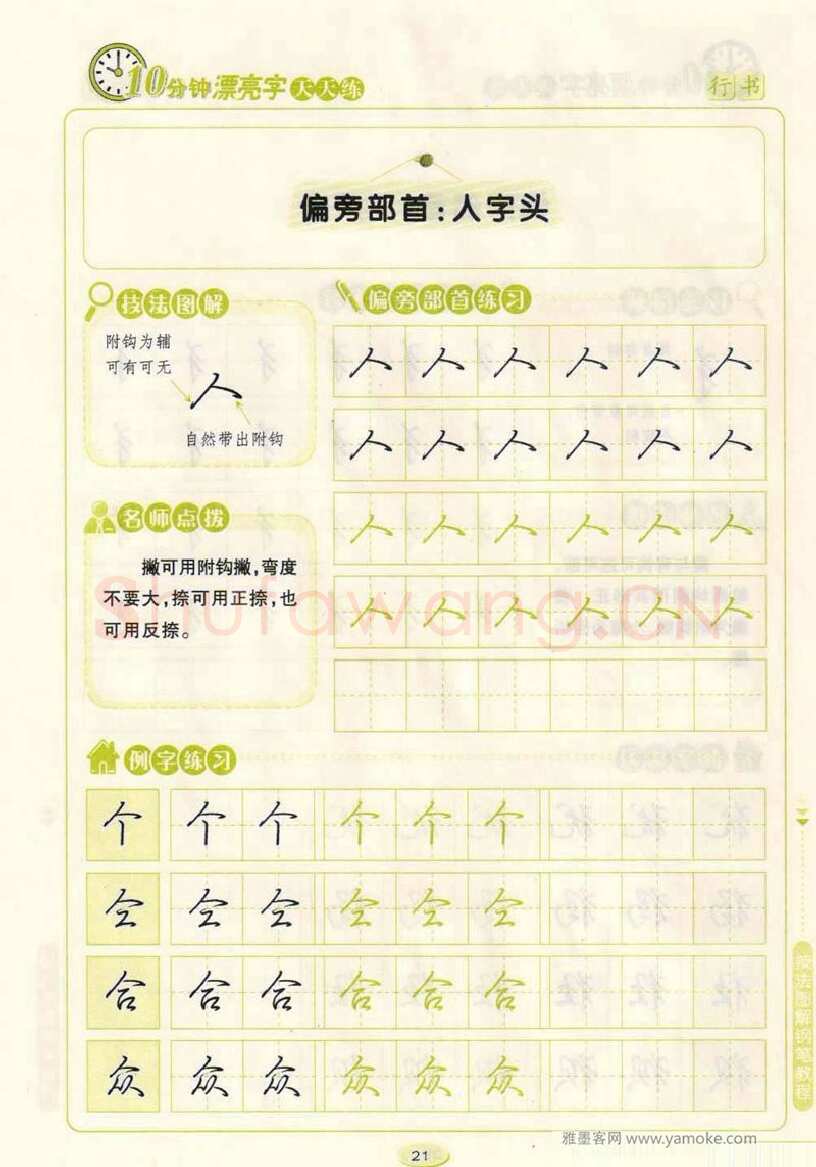 10分钟漂亮字天天练
行书
偏旁部首：人字头
技法图解
附钩为辅
可有可无
人
自然带出附钩
偏旁部首练习
人 人 人 人 人 人
人 人 人 人 人 人
人 人 人 人 人 人
人 人 人 人 人 人
名师点拨
撇可用附钩撇，弯度
不要大，捺可用正捺，也
可用反捺。
Shufawang.CN
例字练习
个 个 个 个 个 个
全 全 全 全 全 全
合 合 合 合 合 合
众 众 众 众 众 众
技法图解钢笔教程
雅墨客网 www.yamoke.com
21